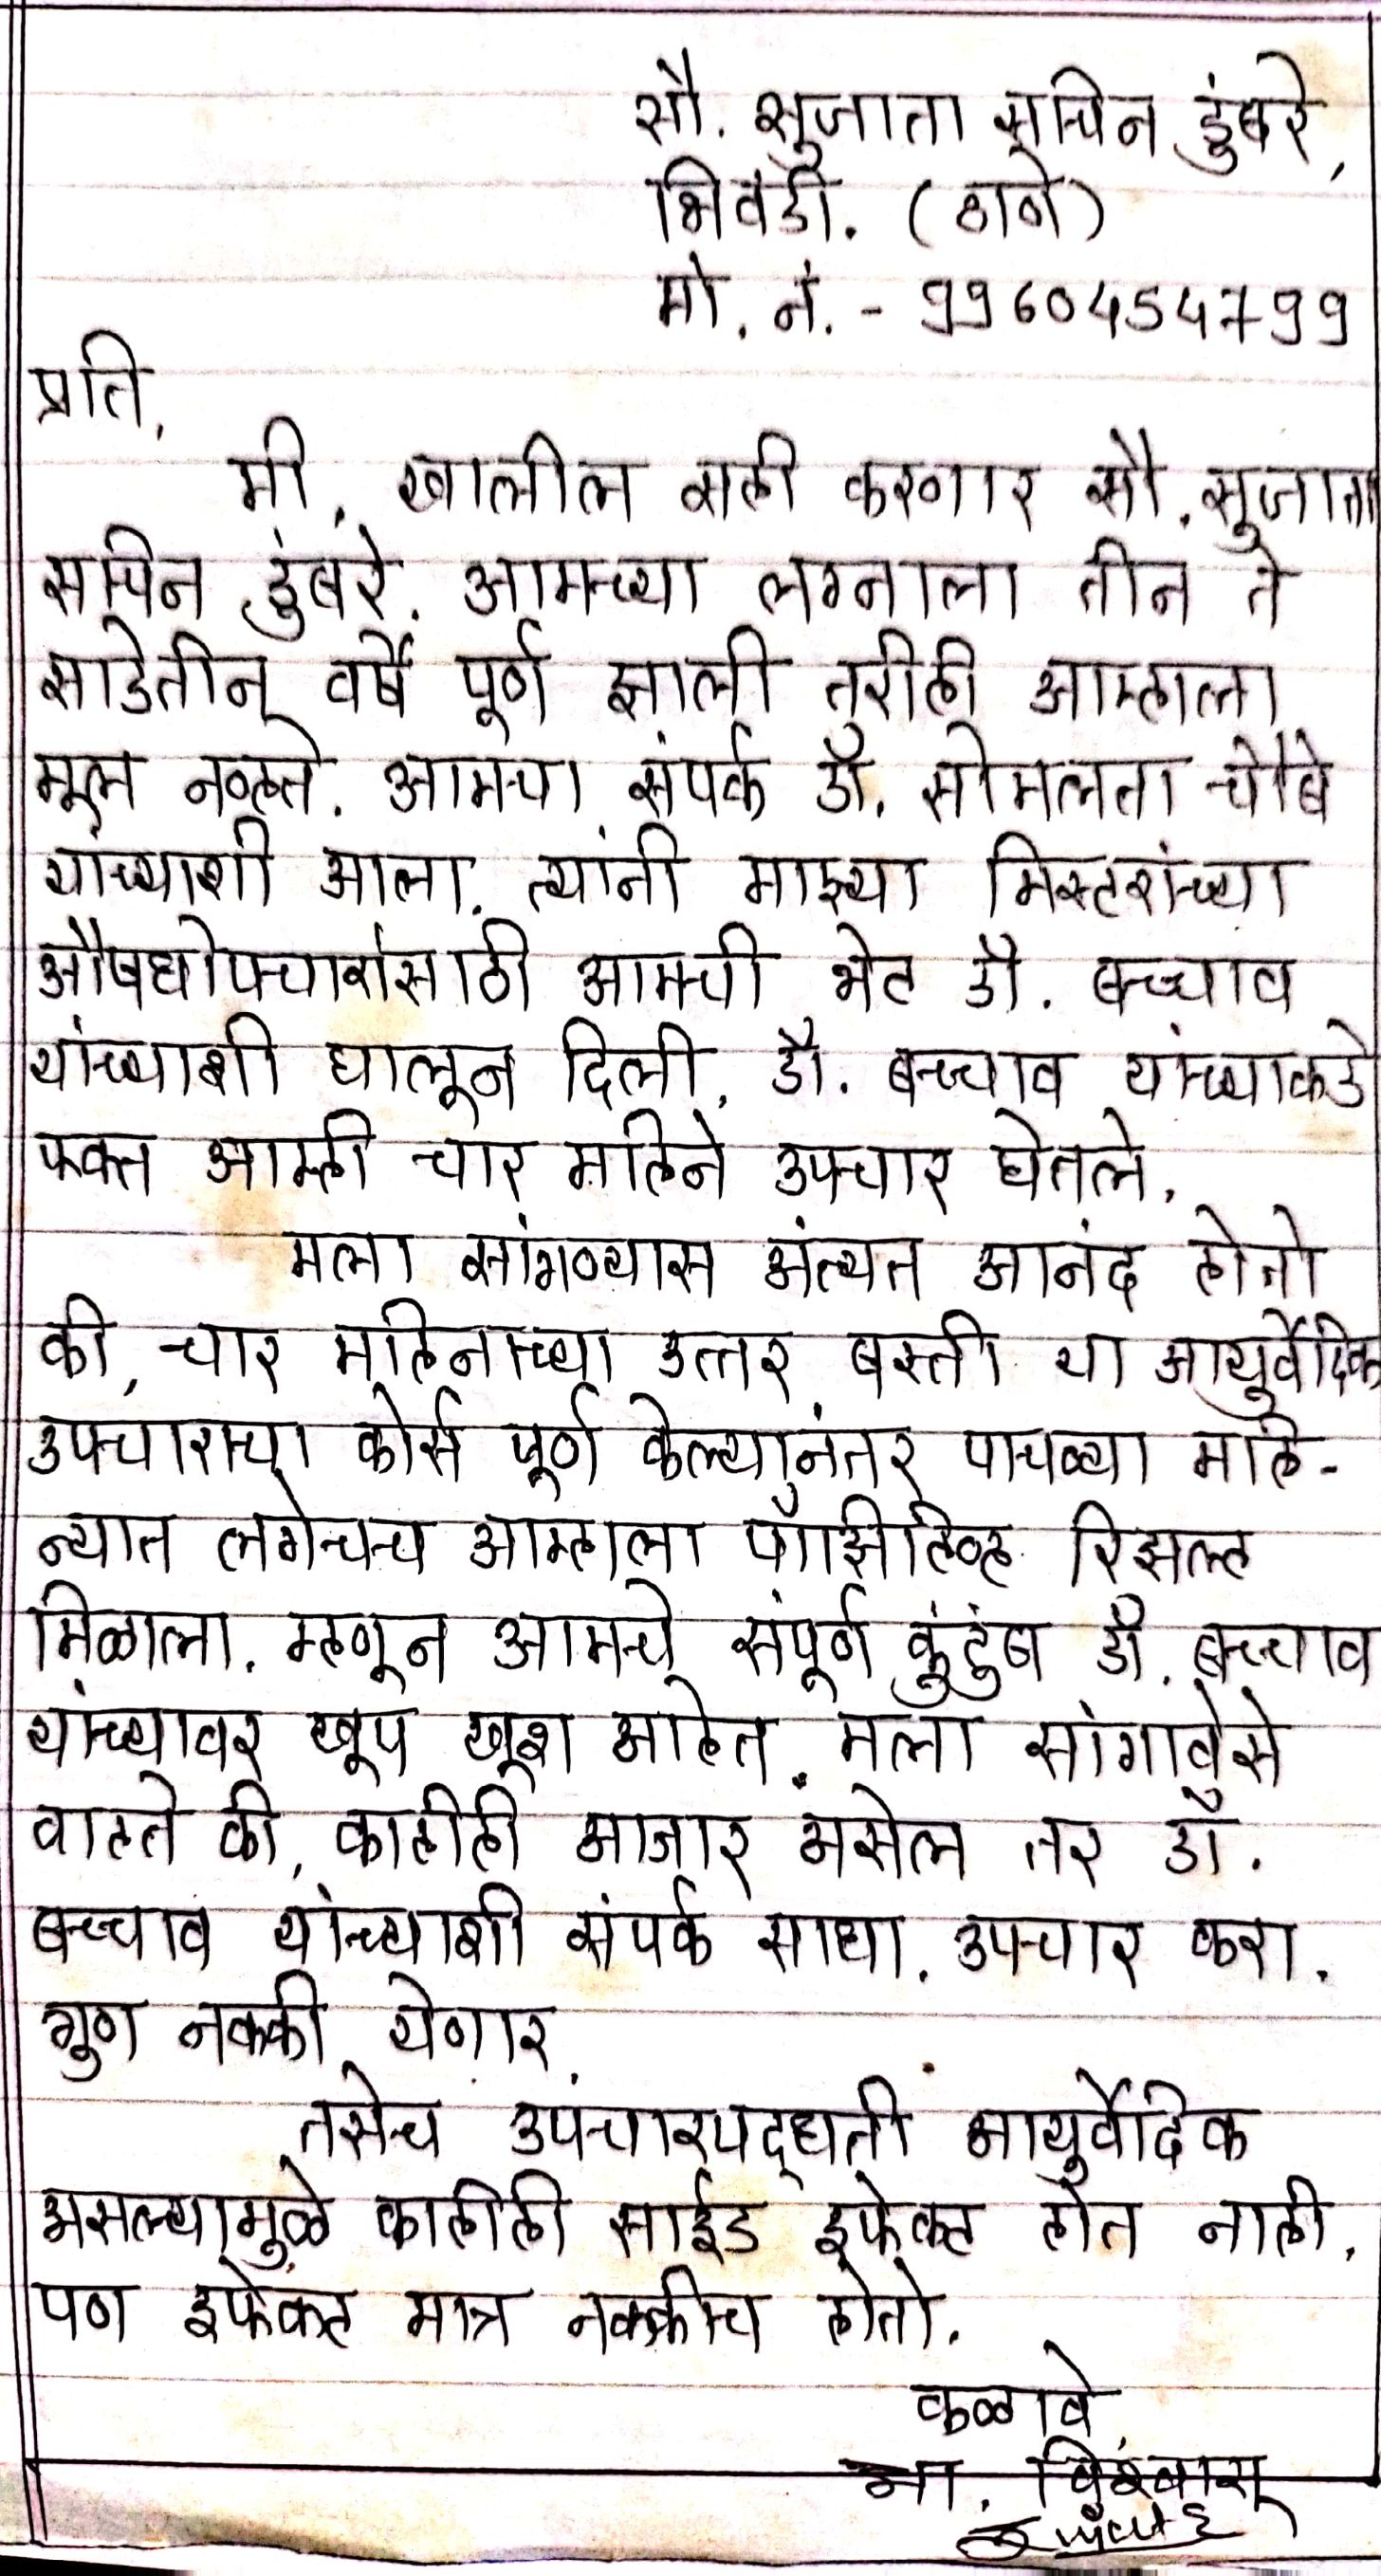 सौ. सुजाता सचिन डुंबरे,
भिवंडी. (ठाणे)
मो. नं. - 9960454799
प्रति,
मी, खालील सही करणार सौ. सुजाता
सचिन डुंबरे. आमच्या लग्नाला तीन ते
साडेतीन वर्षे पूर्ण झाली तरीही आम्हाला
मूल नव्हते. आमचा संपर्क डॉ. सोमलता चौबे
यांच्याशी आला. त्यांनी माझ्या मिस्टरांच्या
औषधोपचारांसाठी आमची भेट डॉ. बच्चाव
यांच्याशी घालून दिली. डॉ. बच्चाव यांच्याकडे
फक्त आम्ही चार महिने उपचार घेतले.
मला सांगण्यास अंत्यत आनंद होतो
की, चार महिनाच्या उत्तर बस्ती या आयुर्वेदिक
उपचाराचा कोर्स पूर्ण केल्यानंतर पाचव्या महि-
न्यात लगेचच आम्हाला पॉझीटिव्ह रिझल्ट
मिळाला. म्हणून आमचे संपूर्ण कुंटुंब डॉ. बच्चाव
यांच्यावर खूप खूश आहेत. मला सांगावेसे
वाटते की, काहीही आजार असेल तर डॉ.
बच्चाव यांच्याशी संपर्क साधा. उपचार करा.
गुण नक्की येणार.
तसेच उपचारपद्धती आयुर्वेदिक
असल्यामुळे काहीही साईड इफेक्ट होत नाही,
पण इफेक्ट मात्र नक्कीच होतो.
कळावे,
आ. विश्वासू